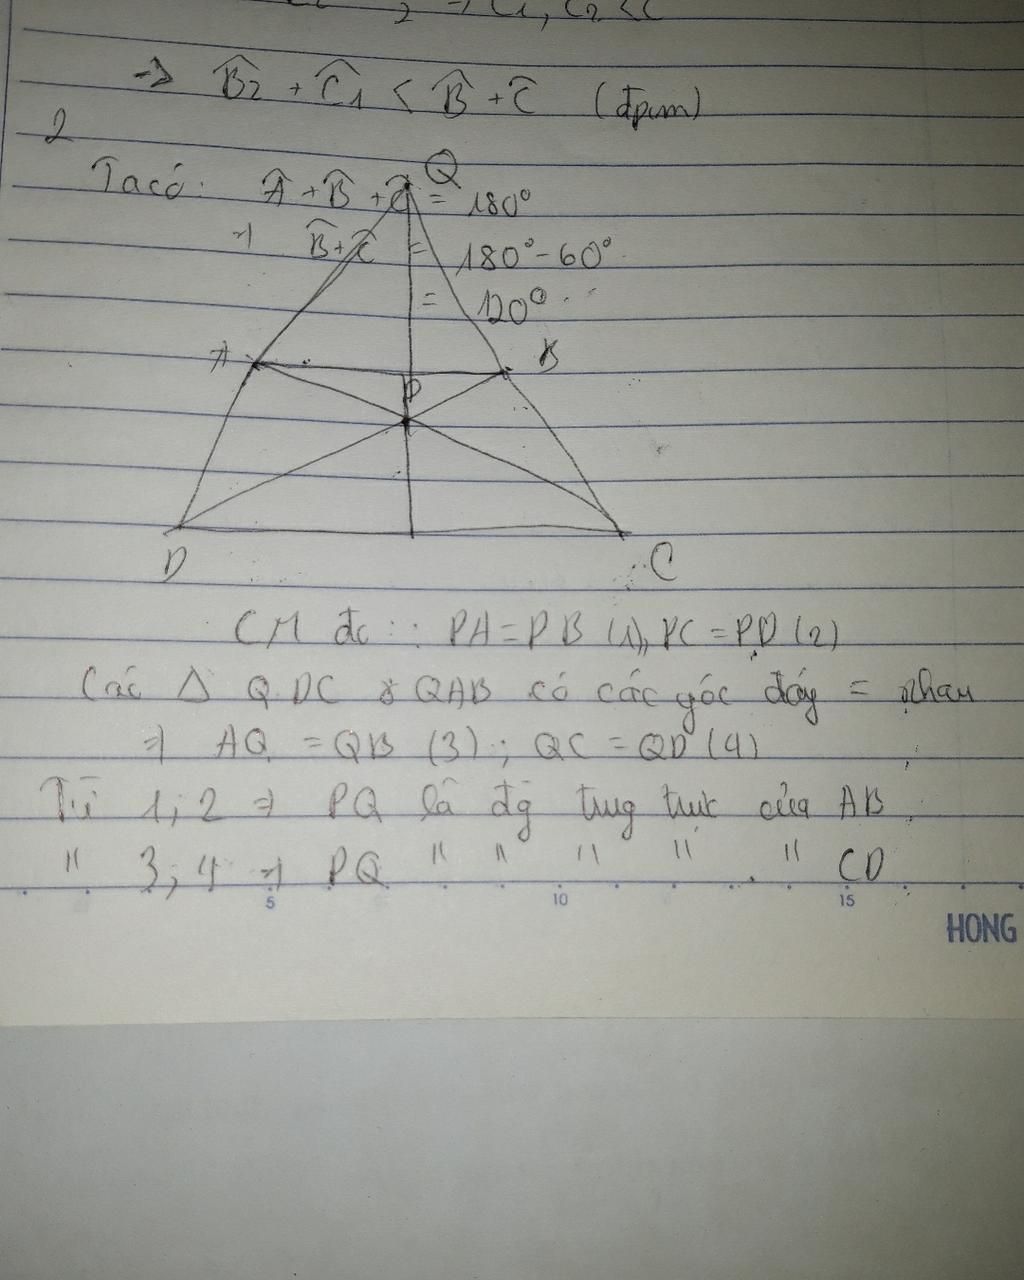 ⇒ B̂2 + Ĉ1 < B̂ + Ĉ (đpcm)
2
Ta có: Â + B̂ + Ĉ = 180°
Q
⇒ B̂ + Ĉ = 180° - 60°
= 120°
A B
P
D C
CM đc : PA = PB (1), PC = PD (2)
Các Δ QDC & QAB có các góc đáy = nhau
⇒ AQ = QB (3) ; QC = QD (4)
Từ 1; 2 ⇒ PQ là đg trug trực của AB
" 3; 4 ⇒ PQ " " " " " CD
5 10 15
HONG